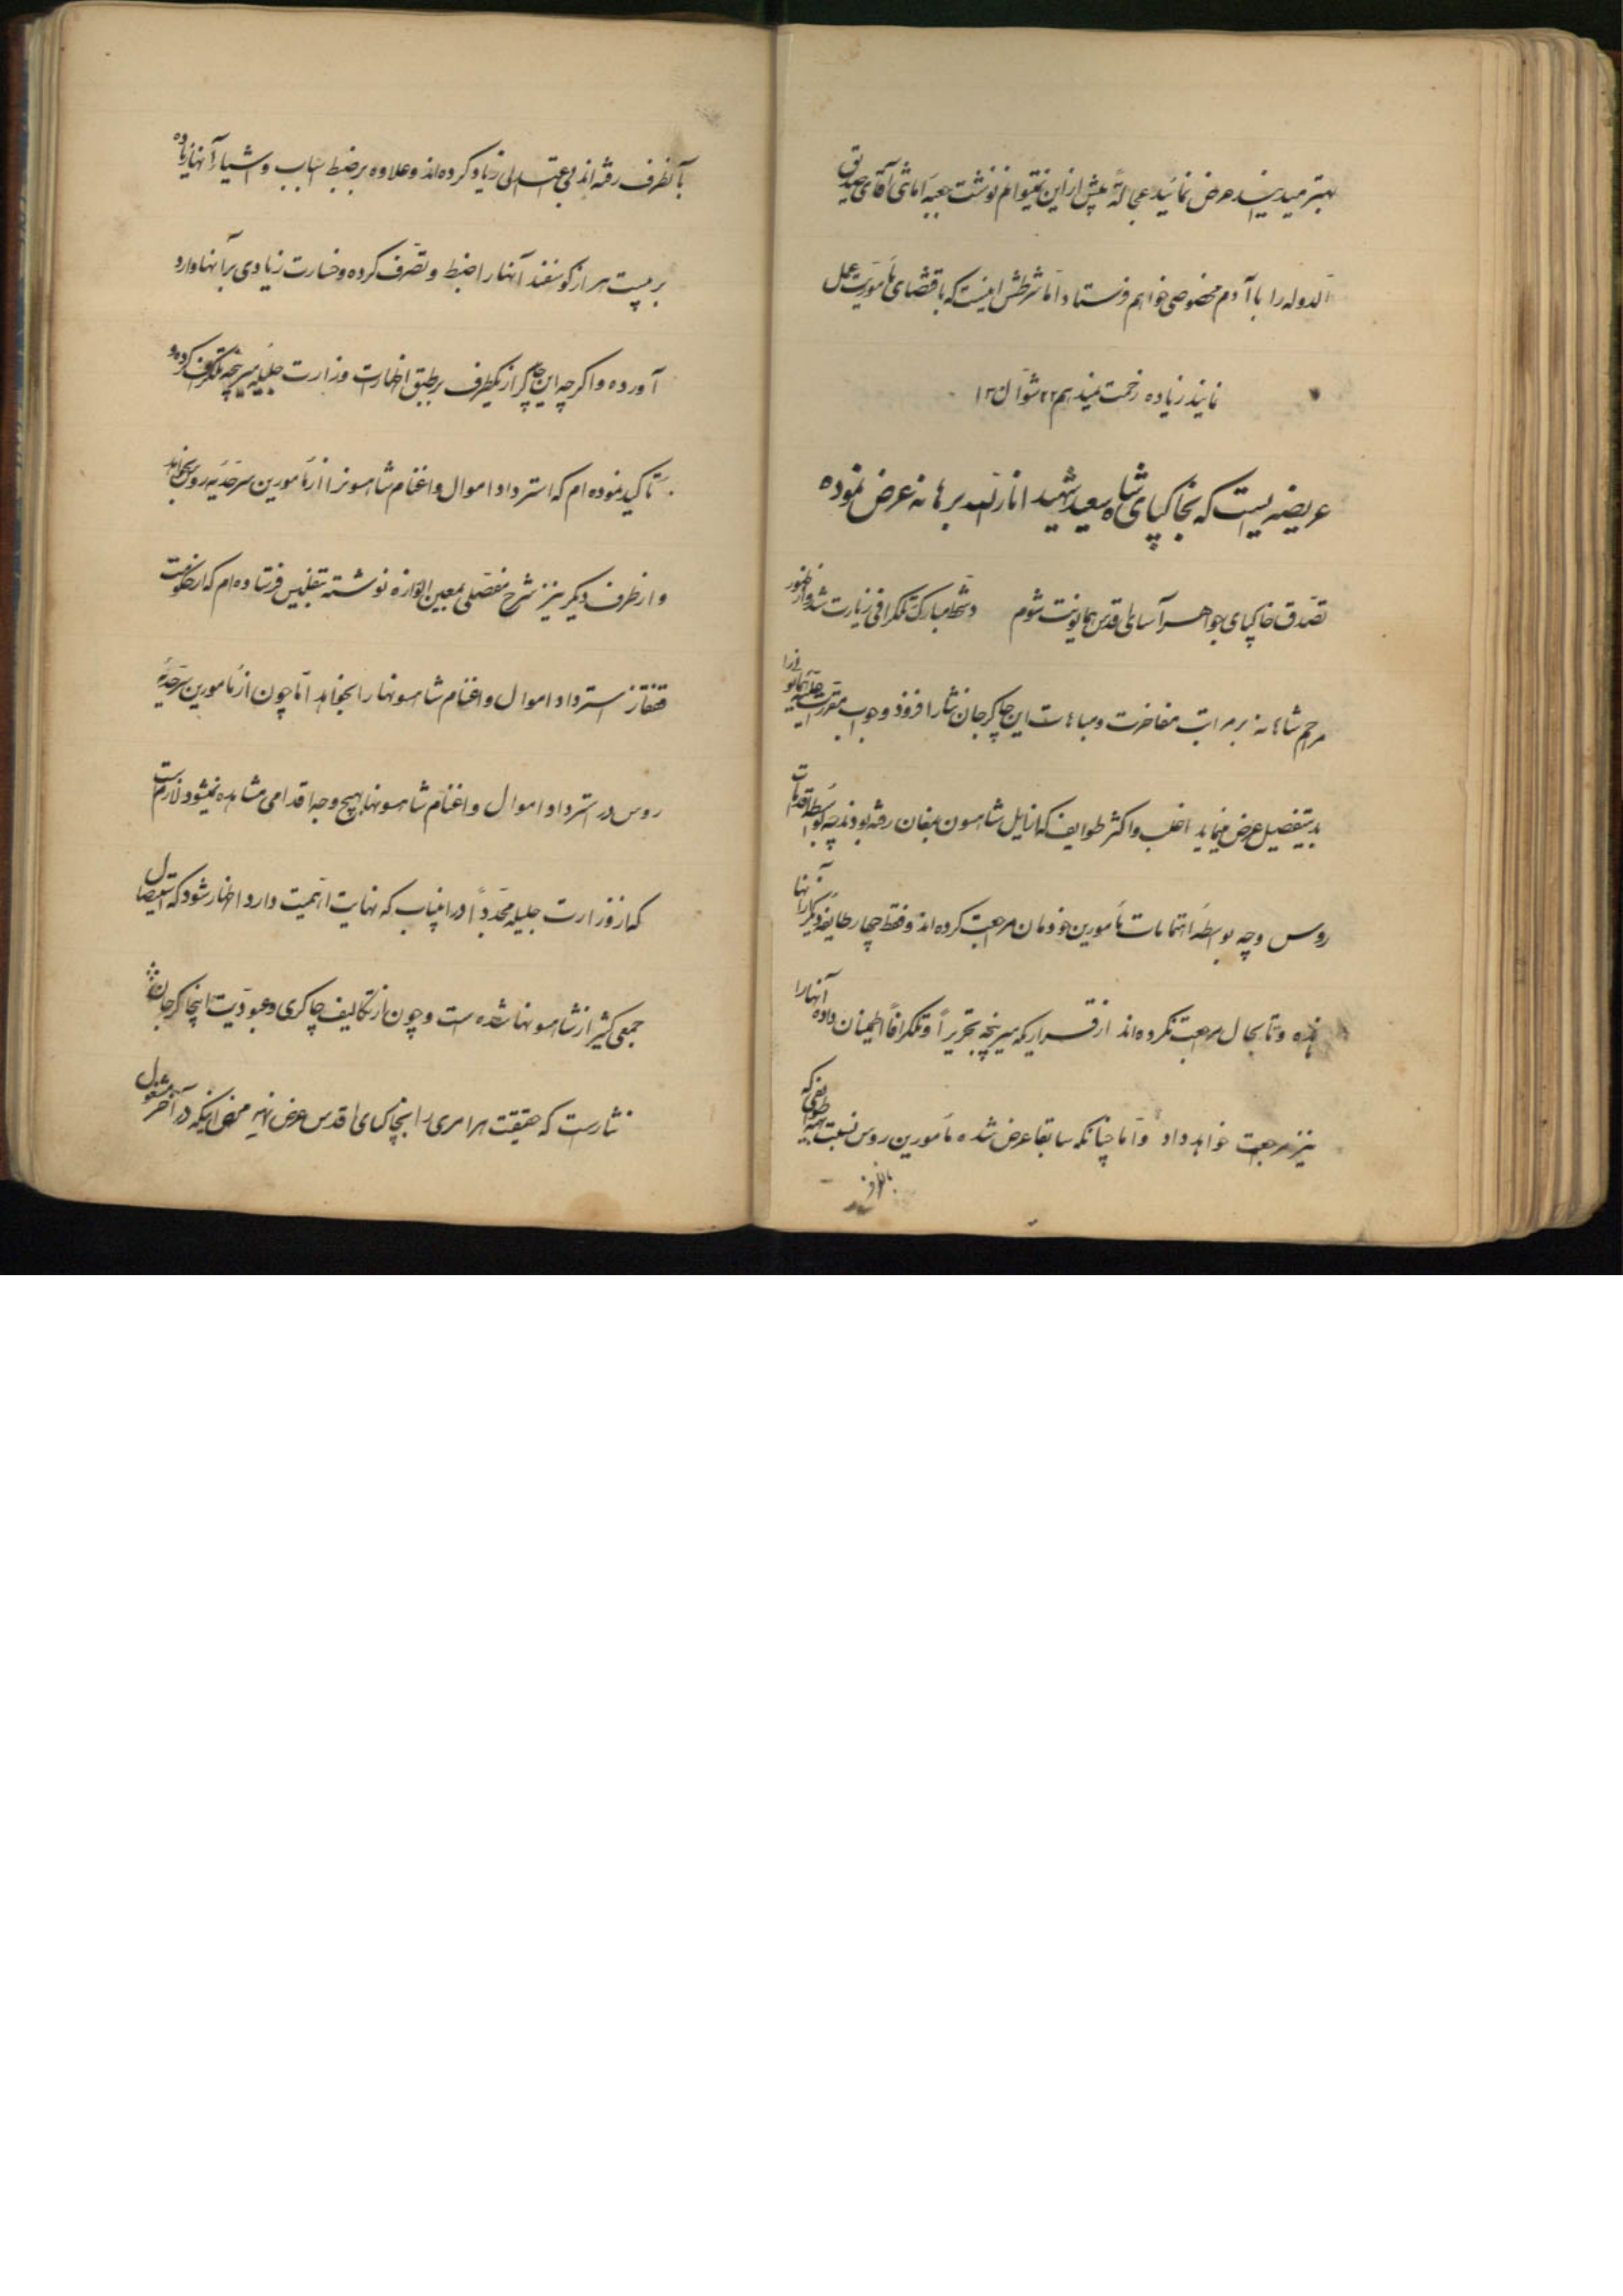 بهتر میدانید عرض نمائید عجالةً بیش از این نمیتوانم نوشت جبه اماثی آقای صدیق
الدوله را با آدم مخصوصی خواهم فرستاد و اما شرطش اینست که باقتضای مأموریت عمل
نمایند زیاده زحمت نمیدهم ۲۲ شوال ۱۳
عریضه ایست که بخاکپای شاه سعید شهید انارالله برهانه عرض نموده
تصدق خاکپای جواهر آسای اقدس همایونت شوم دستخط مبارک تلگرافی زیارت شد و از ظهور
مراحم شاهانه بر مراتب مفاخرت و مباهات این چاکر جان نثار افزود و جواب مقررات علیه همایونی را
بدینتفصیل عرض مینماید اغلب و اکثر طوایف که از ایل شاهسون بمغان رفته بودند چه بواسطه اقدامات
روس و چه بواسطه اهتمامات مأمورین خودمان مراجعت کرده اند و فقط چهار طایفه دیگر از آنها
مانده و تا بحال مراجعت نکرده اند از قراریکه میرپنجه تحریراً و تلگرافاً اطمینان داده آنها را
نیز مراجعت خواهد داد و اما چنانکه سابقا عرض شده مأمورین روس نسبت بهمه طوایفی که
بآنطرف رفته اند بی اعتدالی زیاد کرده اند و علاوه بر ضبط اسباب و اشیاء آنها زیاده
بر بیست هزار گوسفند آنها را ضبط و تصرف کرده و خسارت زیادی بر آنها وارد
آورده و اگرچه این چاکر از یکطرف بر طبق اظهارات وزارت جلیله بمیرپنجه تلگراف کرده و
تأکید نموده ام که استرداد اموال و اغنام شاهسونرا از مأمورین سرحدیه روس بخواهد
و از طرف دیگر نیز شرح مفصلی بمعین الوزاره نوشته بتفلیس فرستاده ام که از حکومت
قفقاز استرداد اموال و اغنام شاهسونها را بخواهد اما چون از مأمورین سرحدیه
روس در استرداد اموال و اغنام شاهسونها بهیچ وجه اقدامی مشاهده نمیشود لازم است
که از وزارت جلیله مجدداً در اینباب که نهایت اهمیت دارد اظهار شود که استیصال
جمعی کثیر از شاهسونها شده است و چون از تکالیف چاکری و عبودیت اینچاکر جان
نثار است که حقیقت هر امری را بخاکپای اقدس عرض نماید محض اینکه در آخر مسئول